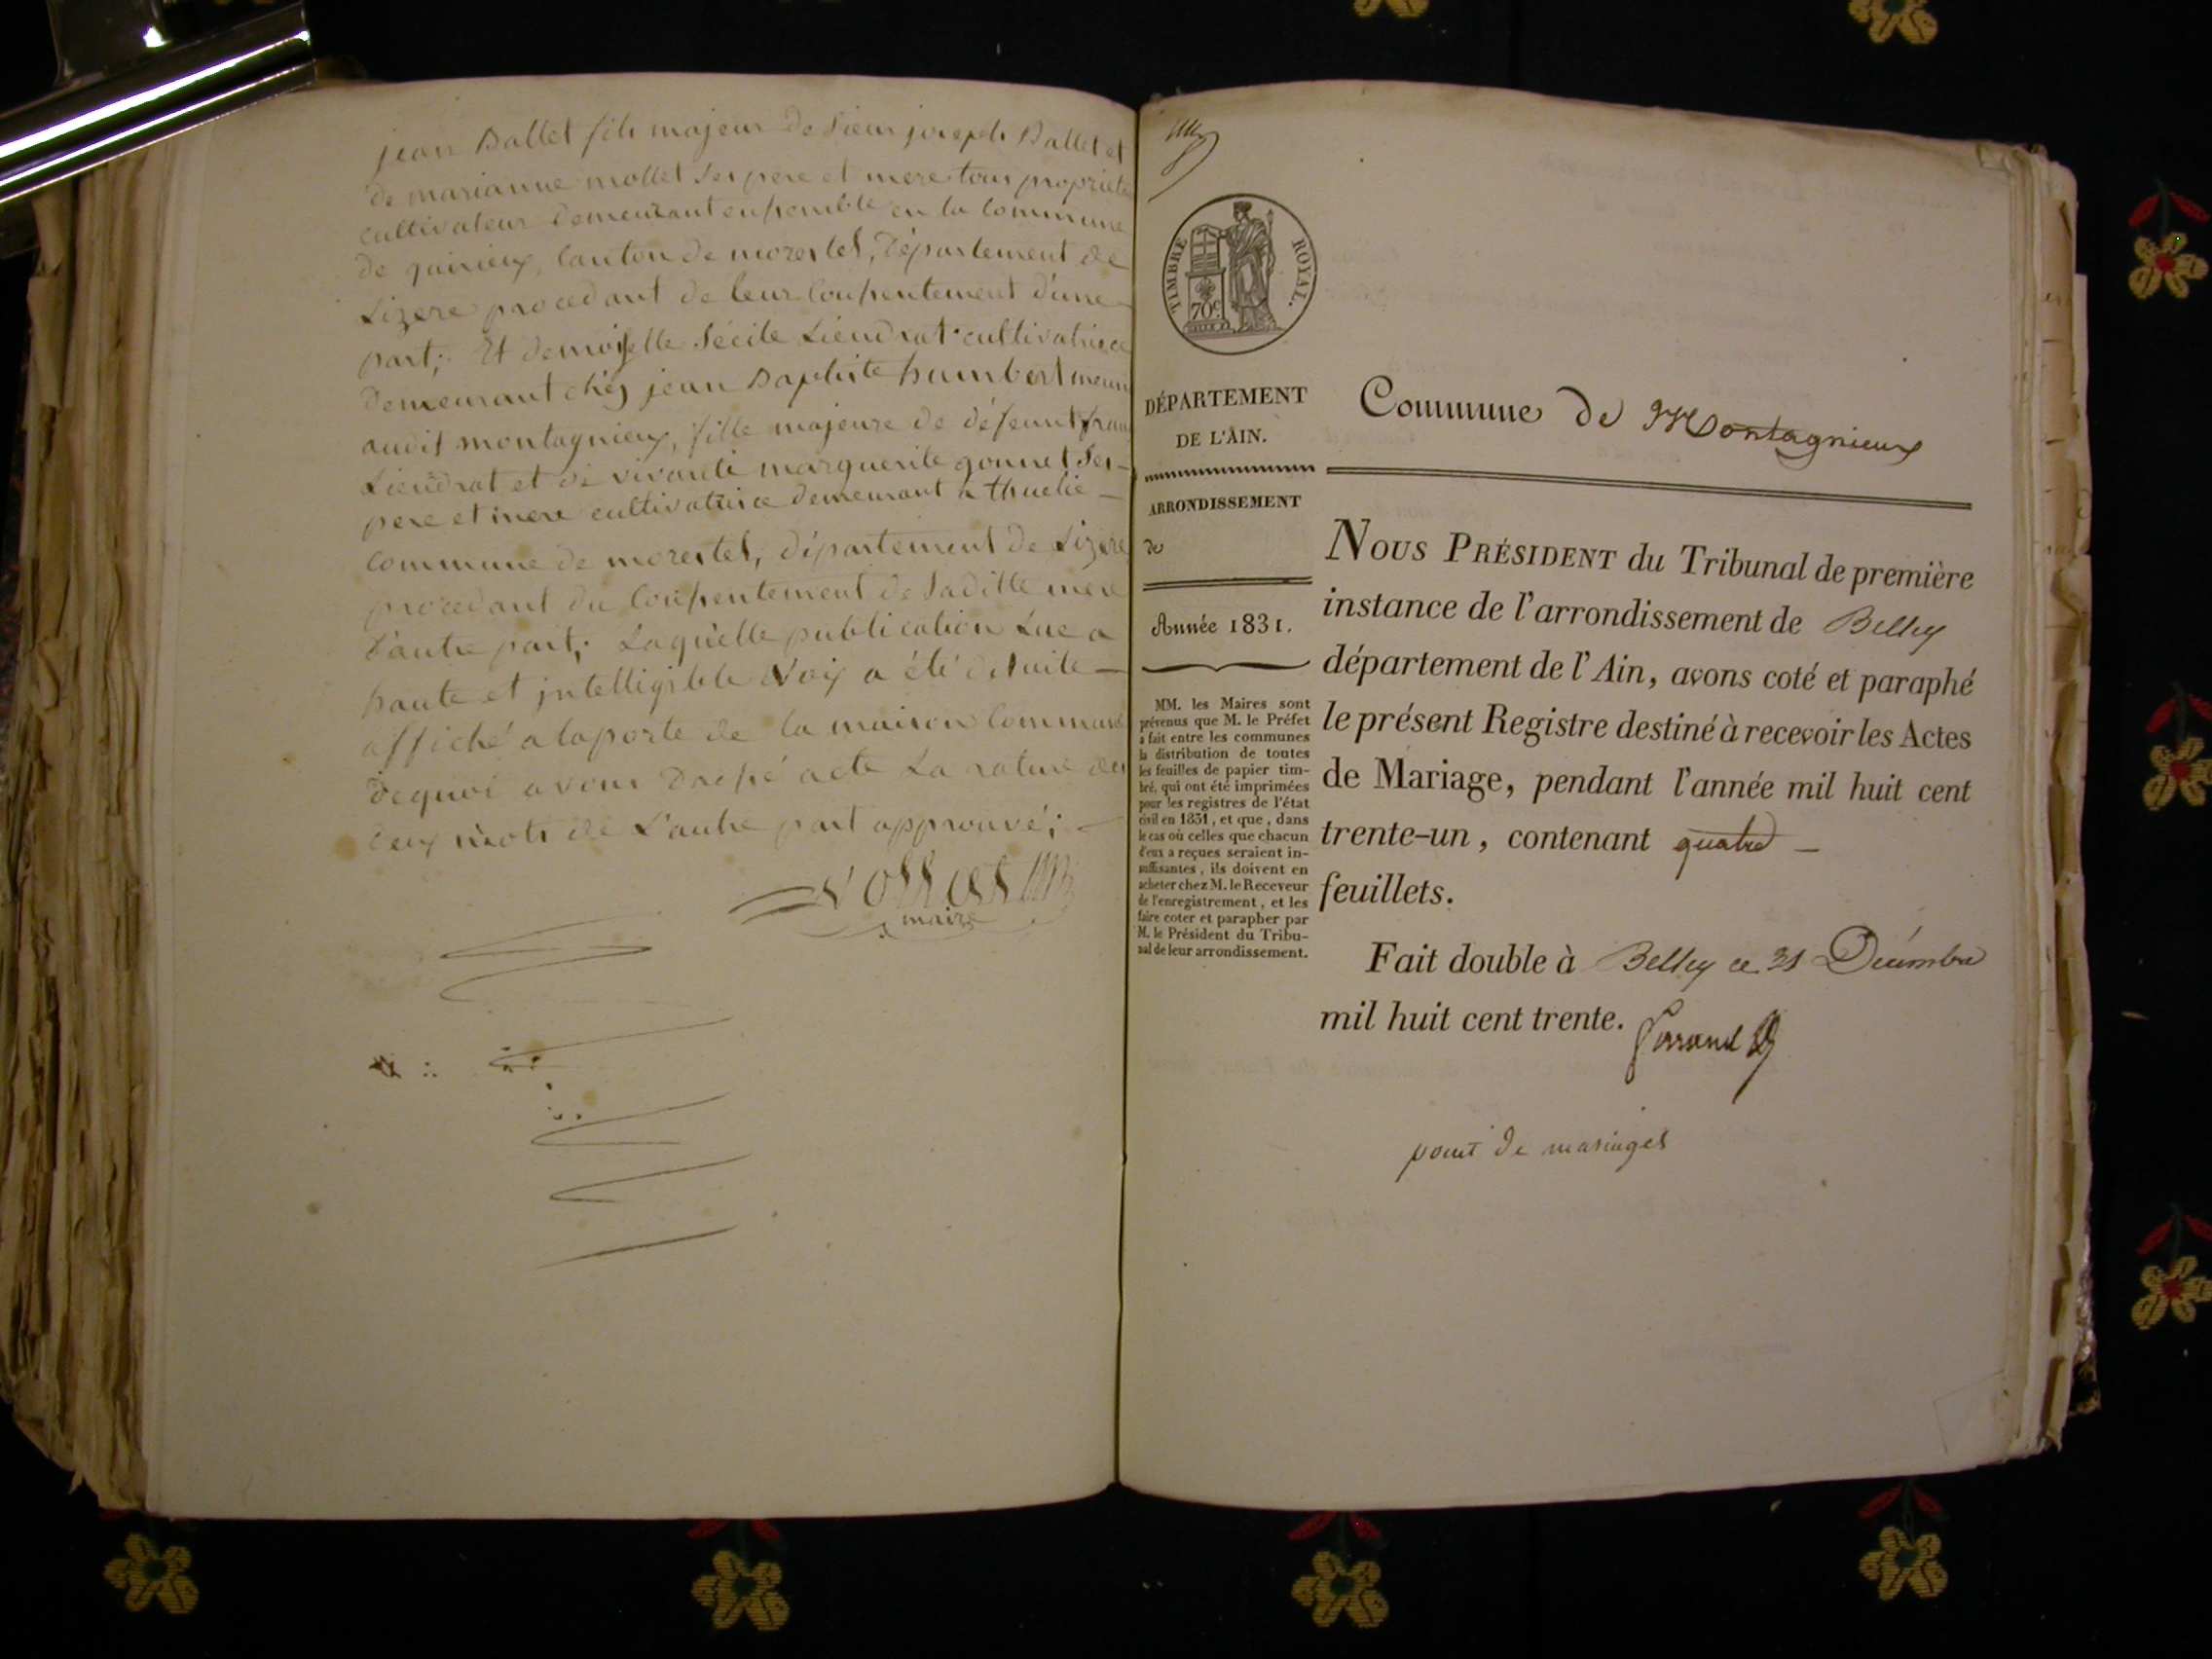 jean Ballet fils majeur de Sieur joseph Ballet et
de marianne mollet ses pere et mere tous propriete
cultivateur demeurant ensemble en la Commune
de quirieux, Canton de morestel, Département de
Lizere procedant de leur Consentement d'une
part; Et demoiselle Sécile Liendrat cultivatrice
demeurant chéz jean Baptiste humbert meun
audit montagnieux, fille majeure de défeunt fran
Liendrat et de vivante marguerite gonnet Ses
pere et mere cultivatrice demeurant a thuelie
commune de morestel, département de Lizere
procedant du Consentement de Saditte mere
D'autre part; Laquelle publication Lue a
haute et jntelligible Voix a été de Suite
affiché alaporte de la maison Commune
Dequoi avons Dressé acte La rature des
deux mots de L'autre part approuvé;
maire
TIMBRE ROYAL.
70c
DÉPARTEMENT
DE L'AIN.
ARRONDISSEMENT
de
Année 1831.
MM. les Maires sont
prévenus que M. le Préfet
a fait entre les communes
la distribution de toutes
les feuilles de papier tim-
bré, qui ont été imprimées
pour les registres de l'état
civil en 1831, et que, dans
le cas où celles que chacun
d'eux a reçues seraient in-
suffisantes, ils doivent en
acheter chez M. le Receveur
de l'enregistrement, et les
faire coter et parapher par
M. le Président du Tribu-
nal de leur arrondissement.
Commune de Montagnieux
NOUS PRÉSIDENT du Tribunal de première
instance de l'arrondissement de Belley
département de l'Ain, avons coté et paraphé
le présent Registre destiné à recevoir les Actes
de Mariage, pendant l'année mil huit cent
trente-un, contenant quatre
feuillets.
Fait double à Belley ce 31 Décembre
mil huit cent trente.
point de mariages